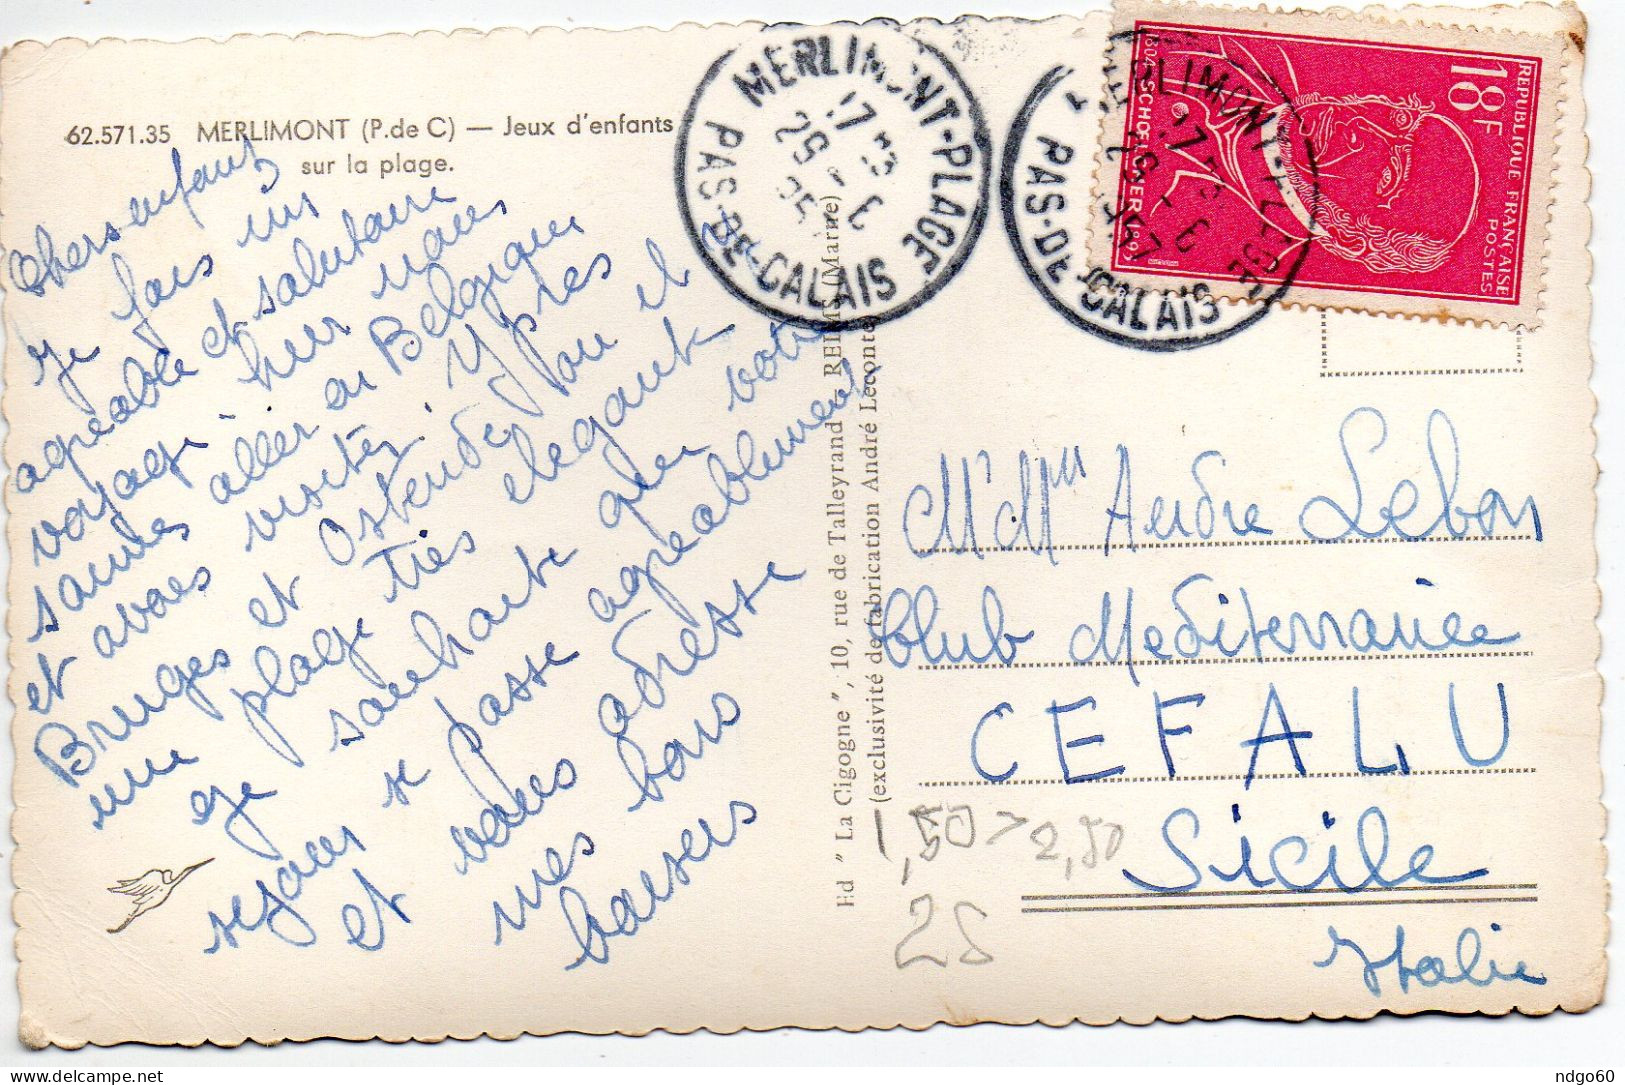 62.571.35 MERLIMONT (P. de C) — Jeux d'enfants
sur la plage.
Chers enfants
Je fais un
agréable et salutaire
voyage. hier nous
sommes aller en Belgique
et avons visités Ypres
Bruges et Ostende ou il
une plage très elegante
Je souhaite que votre
sejour se passe agreablement
et vous adresse
mes bons
baisers
Ed " La Cigogne ", 10, rue de Talleyrand - REIMS (Marne)
(exclusivité de fabrication André Leconte)
MERLIMONT-PLAGE
PAS-DE-CALAIS
MERLIMONT-PLAGE
PAS-DE-CALAIS
REPUBLIQUE FRANÇAISE
POSTES
18F
SCHOELCHER
Mr Mme Andre Lebon
Club Mediterranée
CEFALU
Sicile
Italie
1,50 > 2,50
25
ndgo60